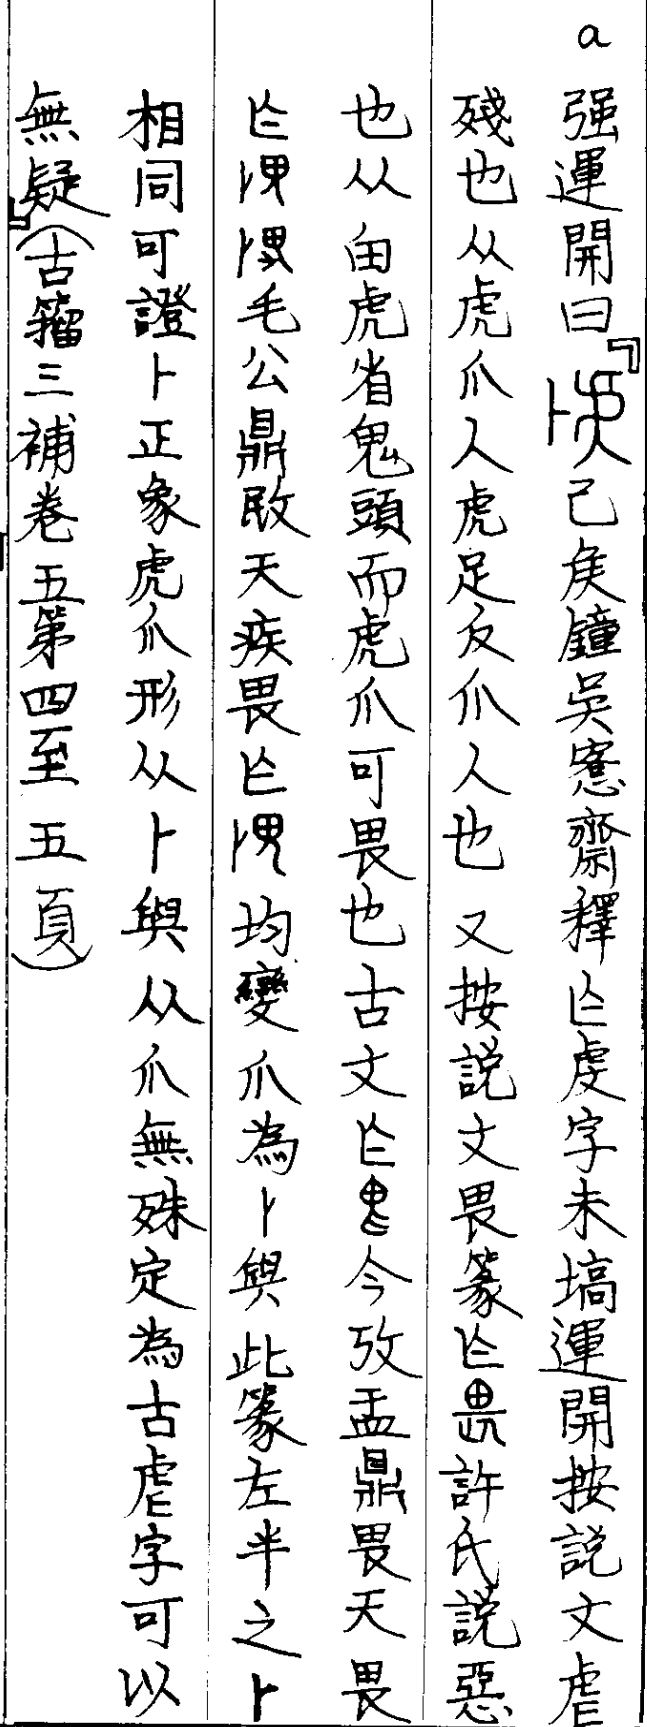 a
强運開曰『己矦鐘吳愙齋釋亾虔字未塙運開按説文虐
殘也从虎爪人虎足反爪人也 又按説文畏篆亾許氏説惡
也从甶虎省鬼頭而虎爪可畏也古文亾今攷盂鼎畏天畏
亾毛公鼎敃天疾畏亾均變爪為卜與此篆左半之卜
相同可證卜正象虎爪形从卜與从爪無殊定為古虐字可以
無疑』(古籀三補卷五第四至五頁)